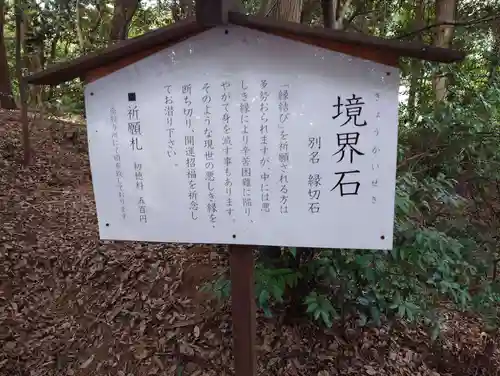 境界石
きょうかいせき
別名 縁切石
「縁結び」を祈願される方は
多勢おられますが、中には悪
しき縁により辛苦困難に陥り、
やがて身を流す事もあります。
そのような現世の悪しき縁を、
断ち切り、開運招福を祈念し
てお潜り下さい。
■祈願札 初穂料 五百円
社務所にて頒布致しております